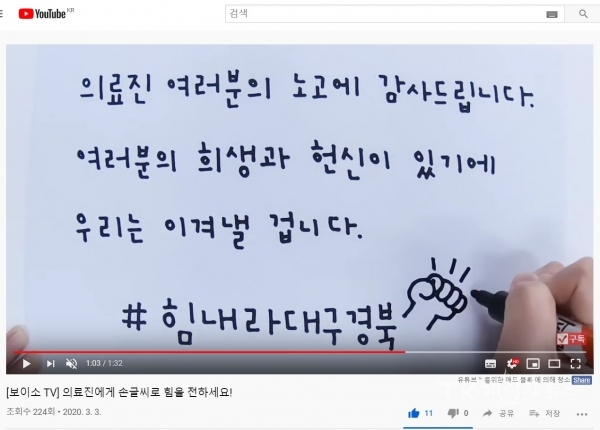 YouTube KR
검색
의료진 여러분의 노고에 감사드립니다.
여러분의 희생과 헌신이 있기에
우리는 이겨낼 겁니다.
#힘내라대구경북
구독
1:03 / 1:32
[보이소 TV] 의료진에게 손글씨로 힘을 전하세요!
Share
조회수 224회 • 2020. 3. 3.
11
0
공유
저장